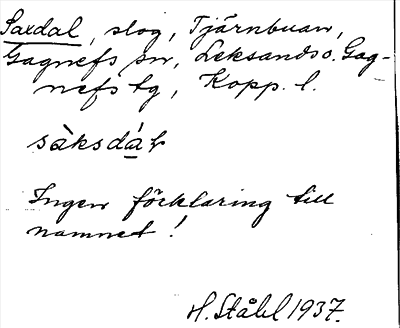 Saxdal, slog, Tjärnbuan,
Gagnefs sn, Leksands o. Gag-
nefs tg, Kopp. l.
sàksdáɫ
Ingen förklaring till
namnet!
H. Ståhl 1937.